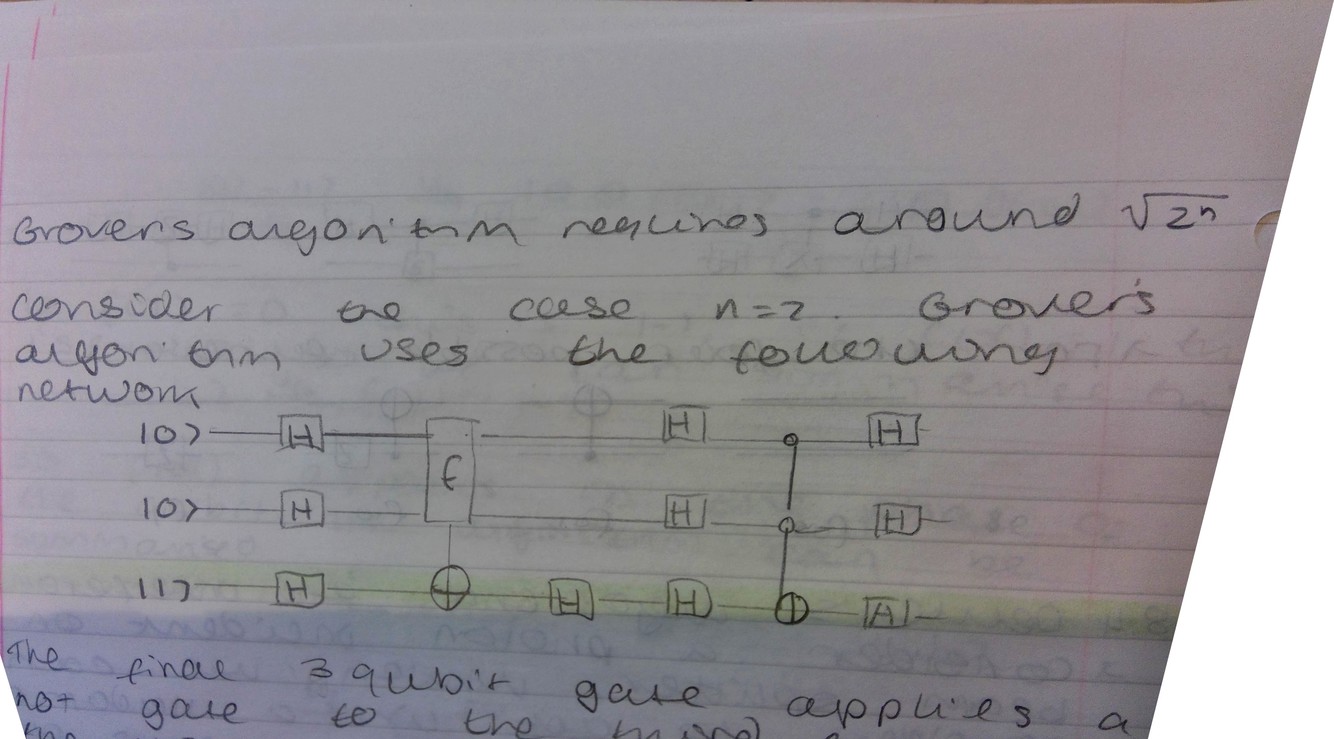 Grover's algorithm requires around √2ⁿ
consider the case n=2. Grover's
algorithm uses the following
network
|0> H H H
f
|0> H H H
|1> H H H H
The final 3 qubit gate applies a
not gate to the third
the